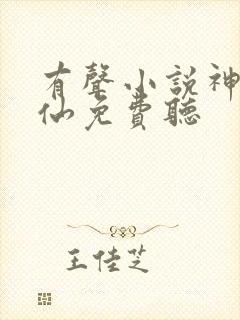 有聲小說神
仙免費聽
王佳芝